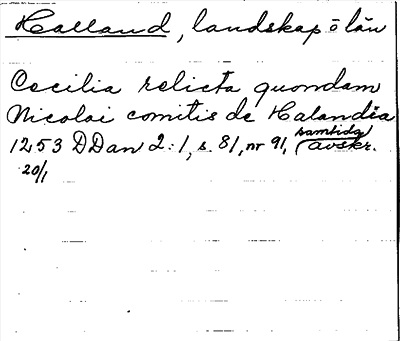 Halland, landskap o län
Cecilia relicta quondam
Nicolai comitis de Halandia
1253 DDan 2:1, s. 81, nr 91, (samtida avskr.
20/1